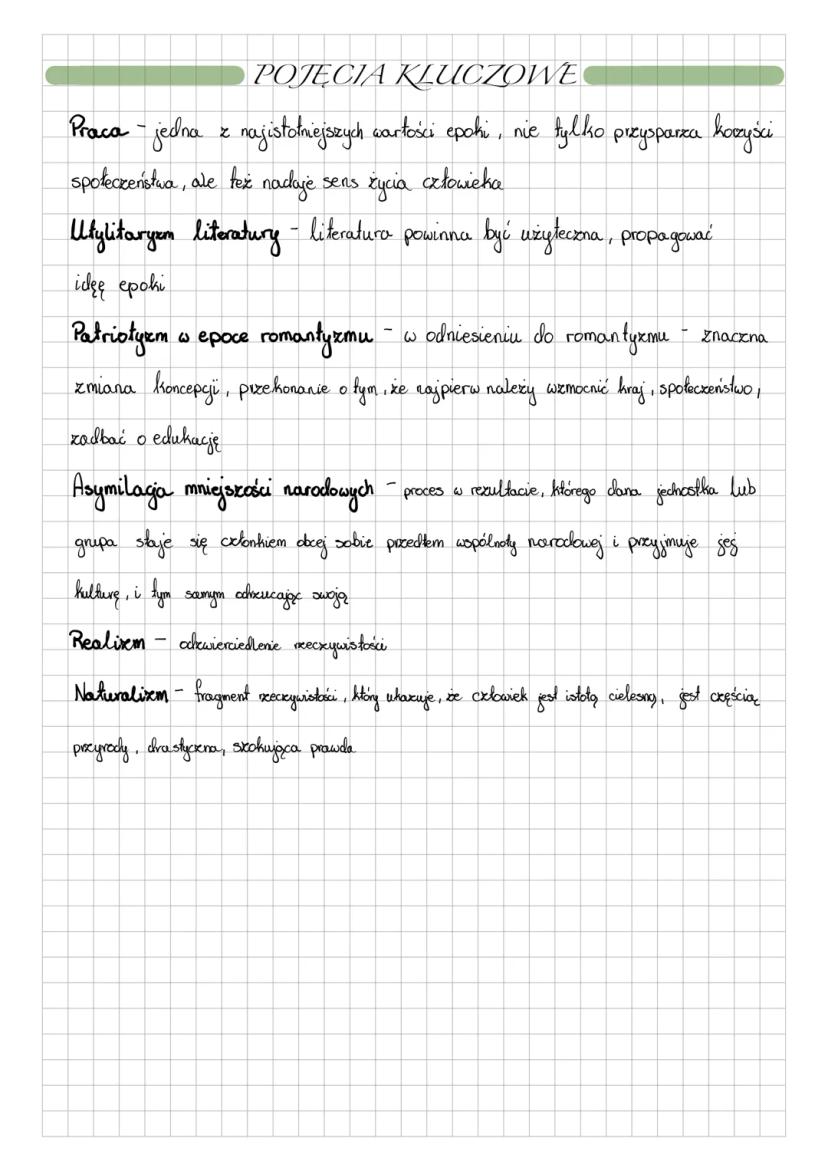 POJĘCIA KLUCZOWE
Praca - jedna z najistotniejszych wartości epoki, nie tylko przysparza korzyści
społeczeństwa, ale też nadaje sens życia człowieka
Utylitaryzm literatury - literatura powinna być użyteczna, propagować
ideę epoki
Patriotyzm w epoce romantyzmu - w odniesieniu do romantyzmu - znaczna
zmiana koncepcji, przekonanie o tym, że najpierw należy wzmocnić kraj, społeczeństwo,
zadbać o edukację
Asymilacja mniejszości narodowych - proces w rezultacie, którego dana jednostka lub
grupa staje się członkiem obcej sobie przedtem wspólnoty narodowej i przyjmuje jej
kulturę, i tym samym odrzucając swoją
Realizm - odzwierciedlenie rzeczywistości
Naturalizm - fragment rzeczywistości, który ukazuje, że człowiek jest istotą cielesną, jest częścią
przyrody, drastyczna, szokująca prawda